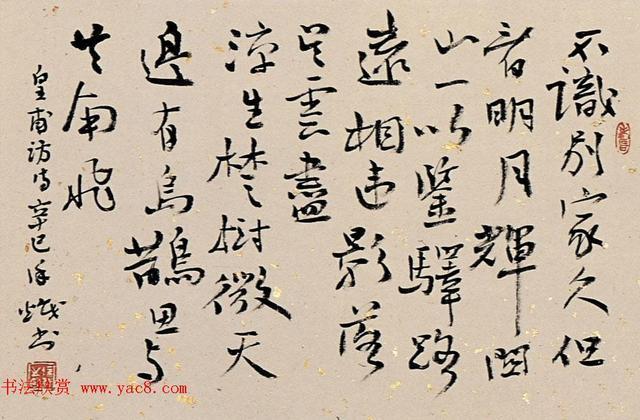 不識別家久但
看明月輝關
山一以鑒驛路
遠相違影落
吳雲盡
涼生楚樹微天
邊有烏鵲思與
共南飛
皇甫訪詩辛巳書
书法欣赏 www.yac8.com